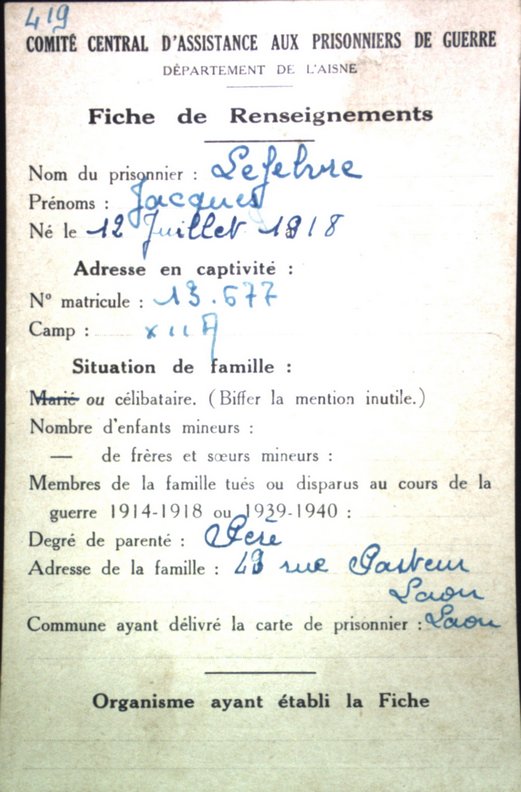 419
COMITÉ CENTRAL D'ASSISTANCE AUX PRISONNIERS DE GUERRE
DÉPARTEMENT DE L'AISNE
Fiche de Renseignements
Nom du prisonnier : Lefebvre
Prénoms : Jacques
Né le 12 Juillet 1918
Adresse en captivité :
N° matricule : 13.677
Camp : XII A
Situation de famille :
Marié ou célibataire. (Biffer la mention inutile.)
Nombre d'enfants mineurs :
— de frères et sœurs mineurs :
Membres de la famille tués ou disparus au cours de la
guerre 1914-1918 ou 1939-1940 :
Degré de parenté : Père
Adresse de la famille : 43 rue Pasteur
Laon
Commune ayant délivré la carte de prisonnier : Laon
Organisme ayant établi la Fiche